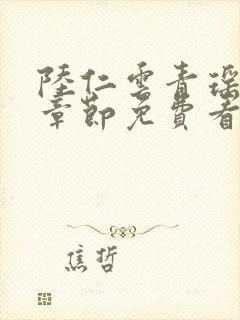 陸仁雲青瑶
章節免費看
焦哲